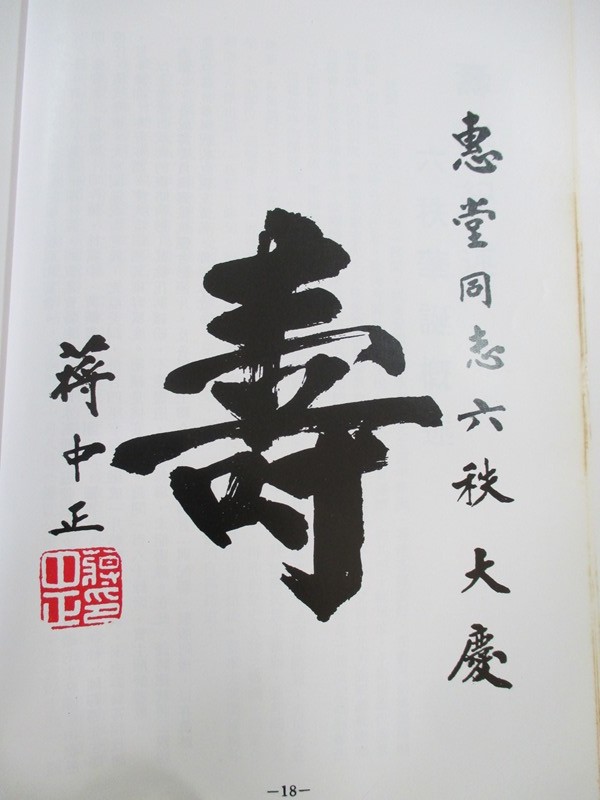 惠堂同志六秩大慶
壽
蔣中正
蔣中正印
－18－